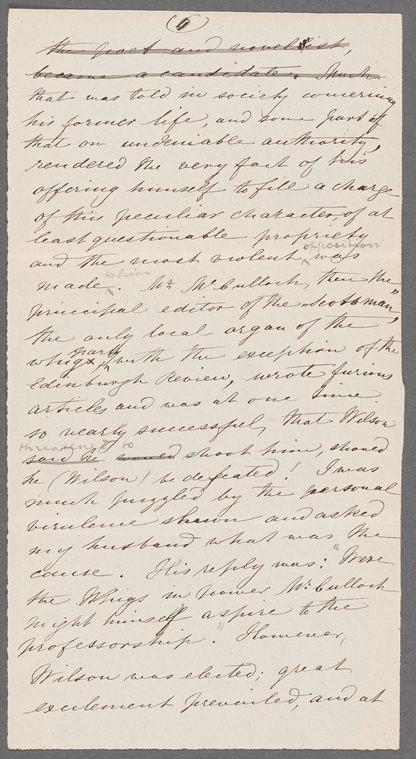 (6)
the poet and novelist,
became a candidate. Much
that was told in society concerning
his former life, and some part of
that on undeniable authority,
rendered the very fact of his
offering himself to fill a charge
of this peculiar character, of at
least questionable propriety
opposition
and the most violent was
to him
made. Mr. McCulloch, then the
principal editor of the "Scotsman",
the only local organ of the
party
whigs, with the exception of the
Edinburgh Review, wrote furious
articles and was at one time
so nearly successful, that Wilson
threatened to
said he would shoot him, should
he (Wilson) be defeated! I was
much puzzled by the personal
virulence shewn and asked
my husband what was the
cause. His reply was: "Were
the Whigs in power McCulloch
might himself aspire to the
professorship." However,
Wilson was elected; great
excitement prevailed, and at